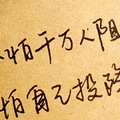 怕千万人阻
怕自己投降